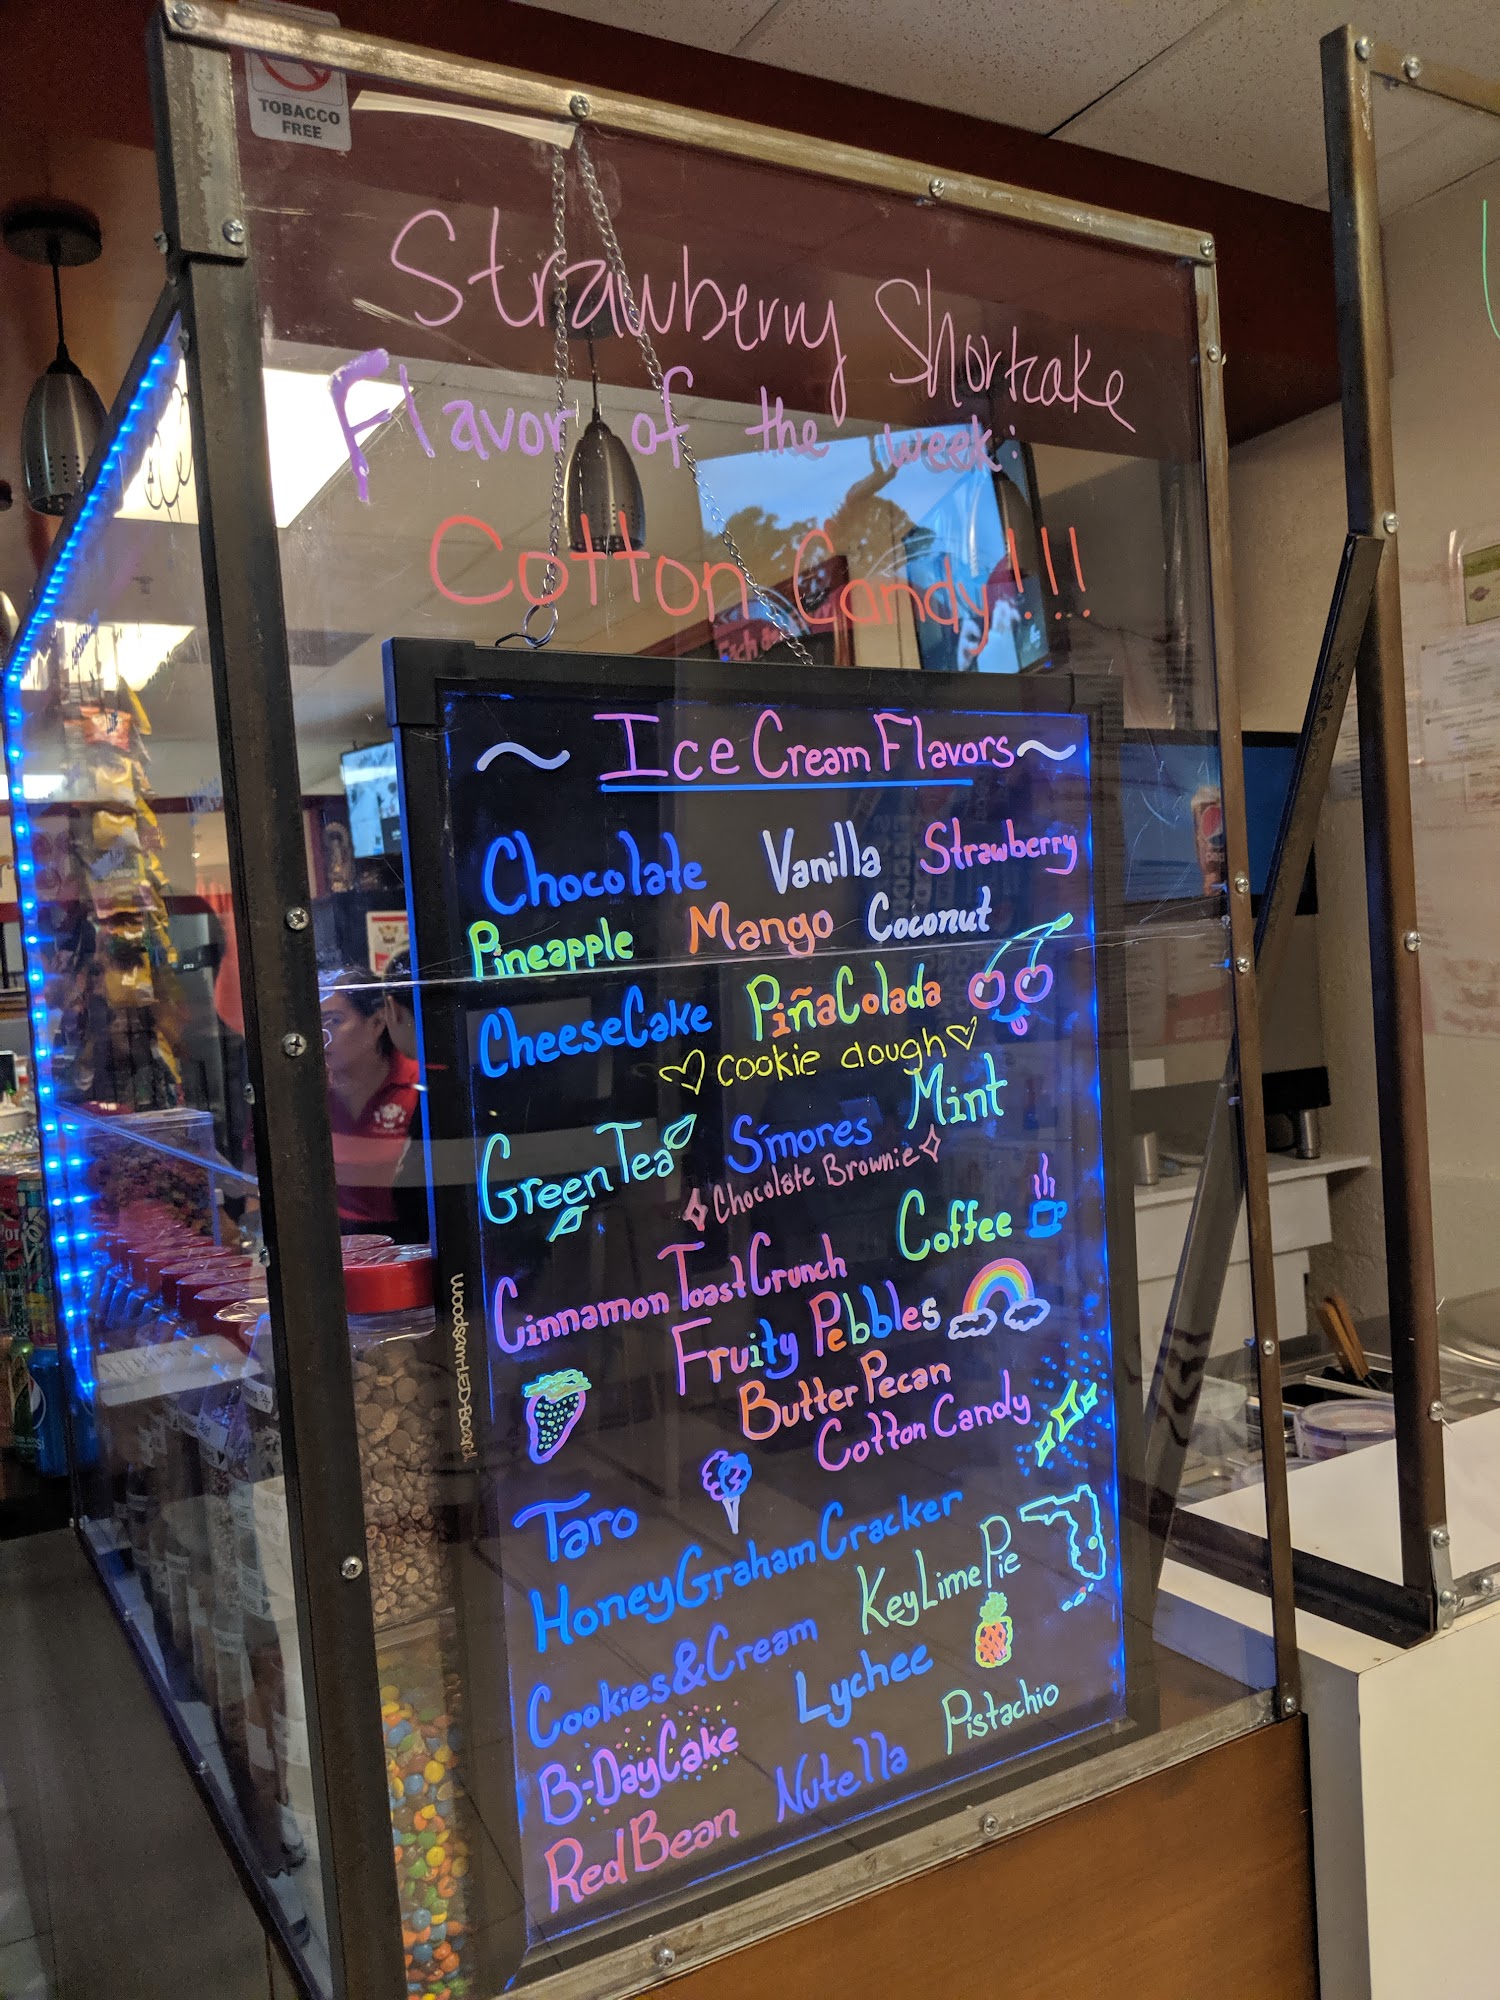 TOBACCO
FREE
Strawberry Shortcake
Flavor of the week:
Cotton Candy!!!
~ Ice Cream Flavors ~
Chocolate Vanilla Strawberry
Pineapple Mango Coconut
CheeseCake PiñaColada
♡ cookie dough ♡
Green Tea S'mores Mint
Chocolate Brownie
Coffee
Cinnamon Toast Crunch
Fruity Pebbles
Butter Pecan
Cotton Candy
Taro
Honey Graham Cracker
Key Lime Pie
Cookies & Cream
Lychee
B-Day Cake
Nutella Pistachio
Red Bean
Woodsam LED-Board